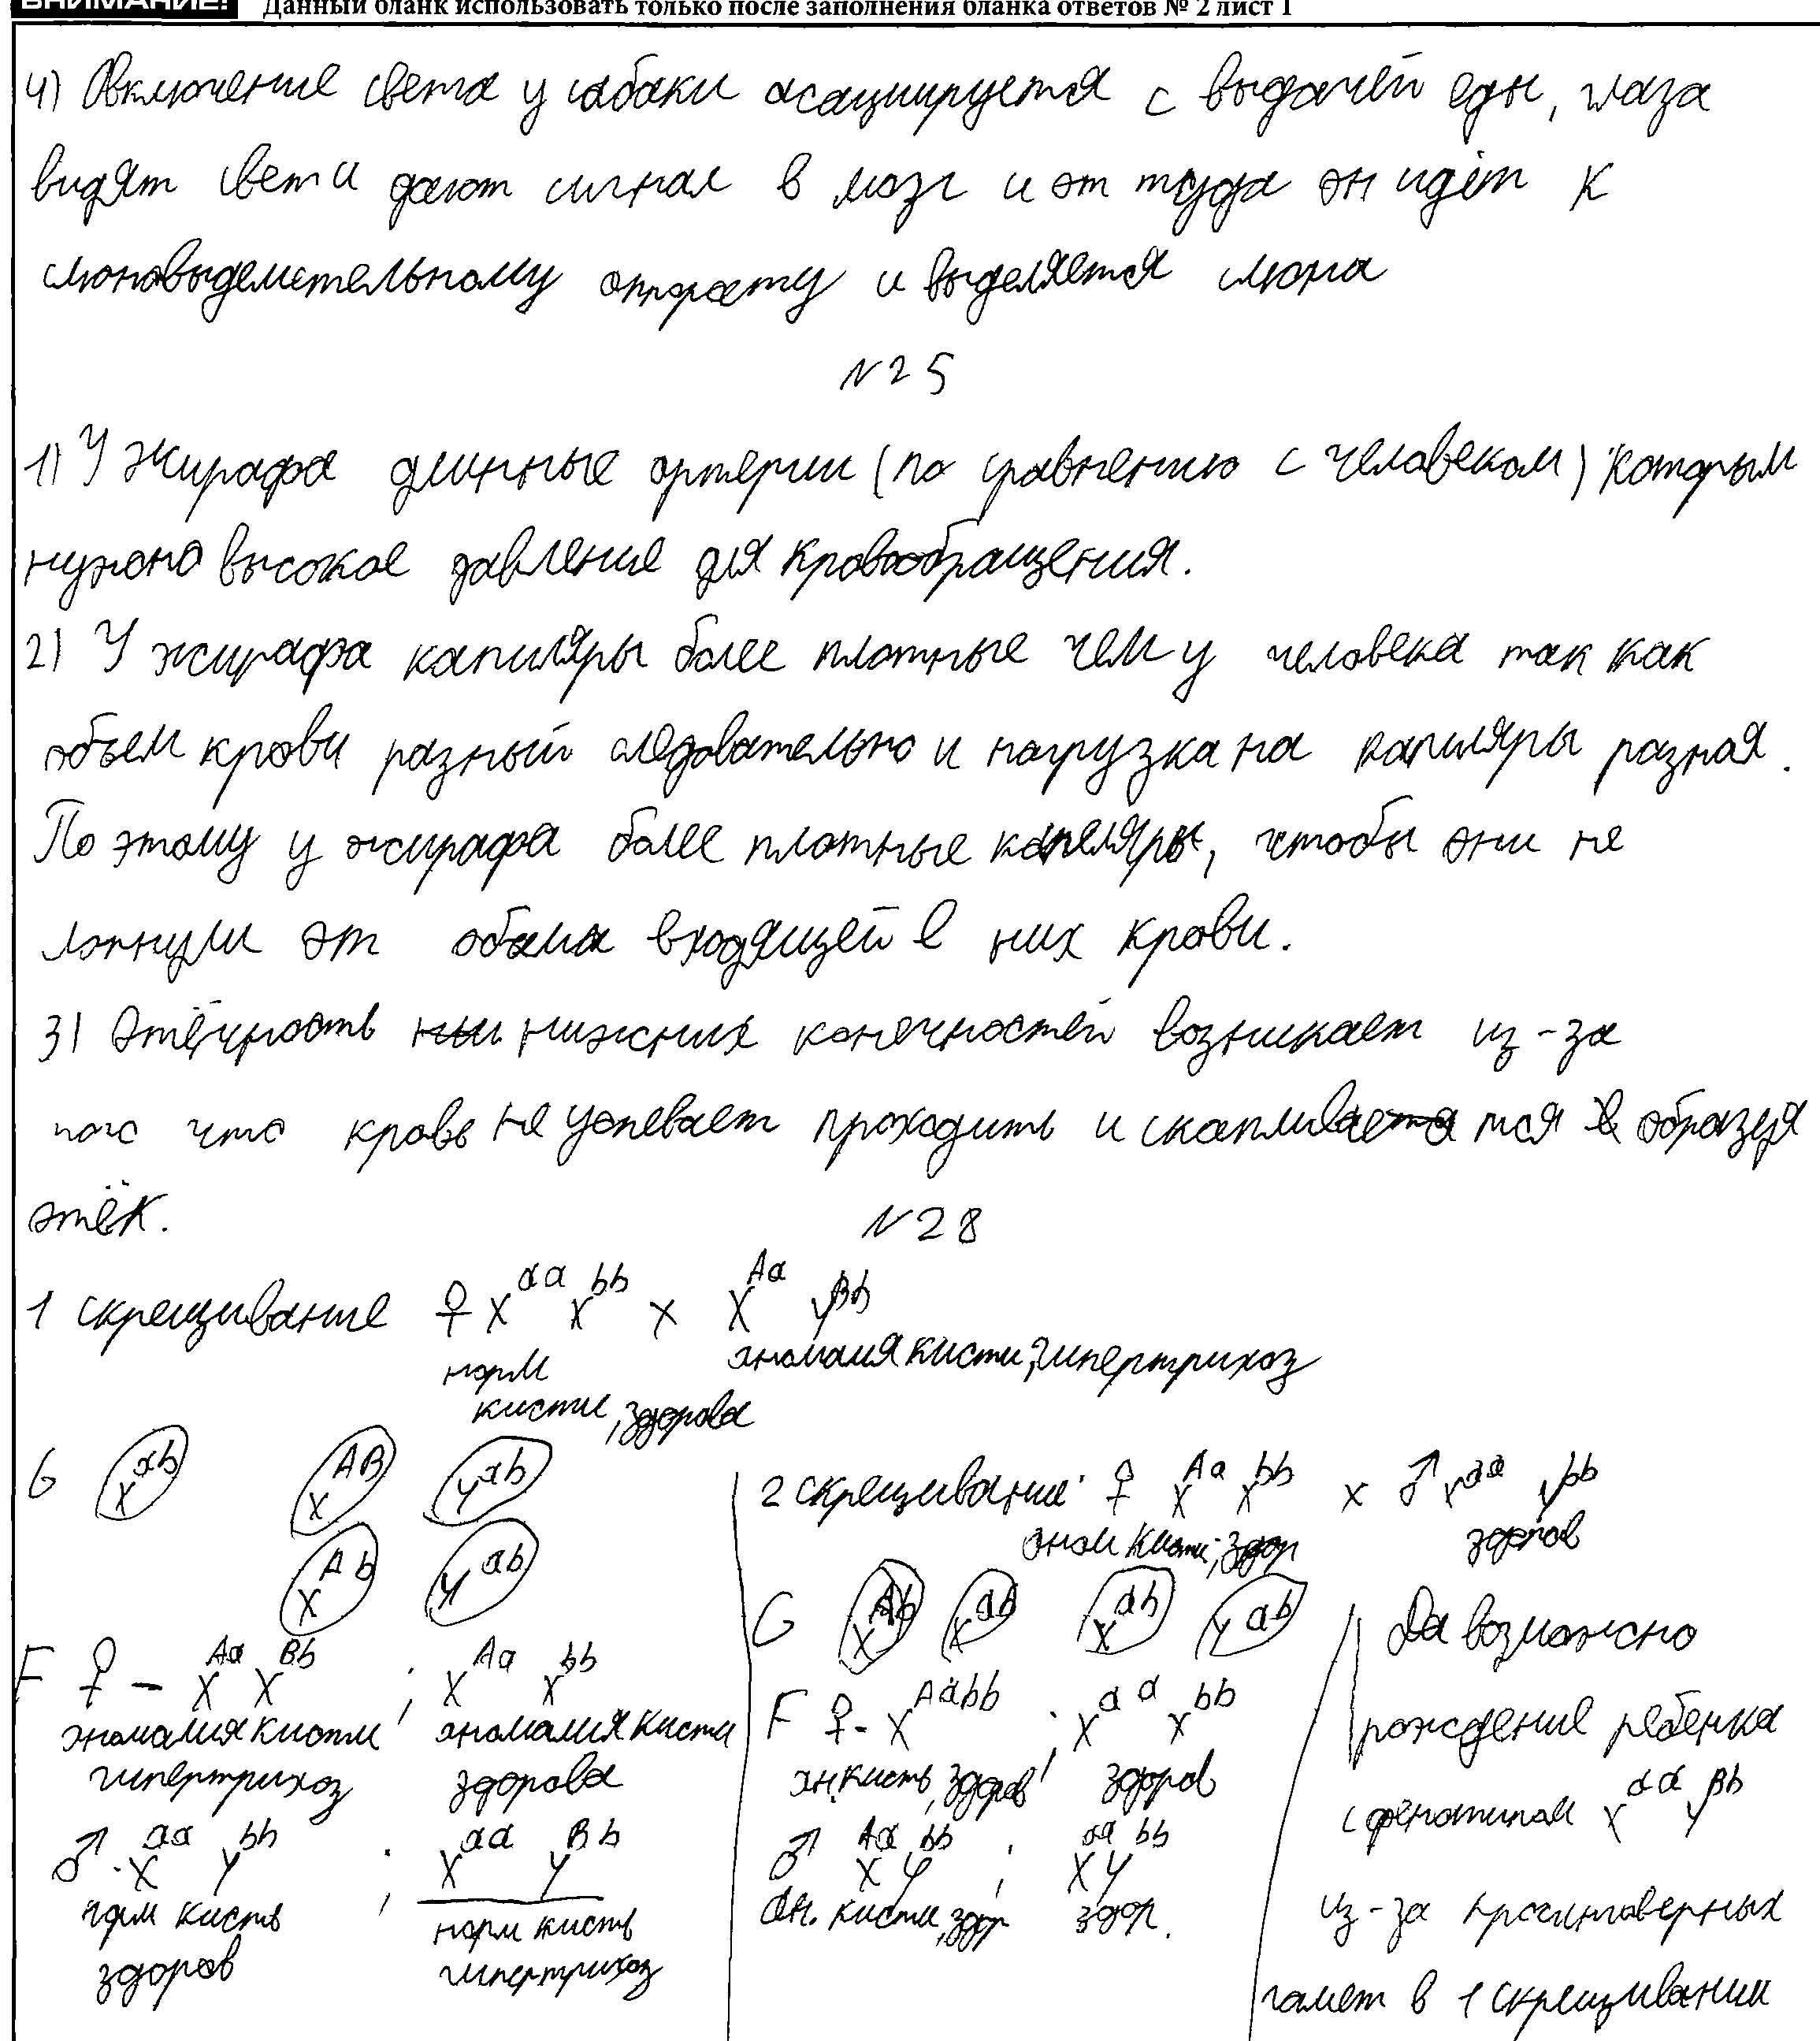 ВНИМАНИЕ! Данный бланк использовать только после заполнения бланка ответов № 2 лист 1
4) Включение света у сабаки асацыируется с выдачей еды, глаза
видят свет и дают сигнал в мозг и от туда он идёт к
слюновыделительному аппарату и выделяется слюна
№25
1) У жирафа длинные артерии (по сравнению с человеком) которым
нужно высокое давление для кровообращения.
2) У жирафа капиляры более плотные чем у человека так как
объем крови разный следовательно и нагрузка на капиляры разная.
По этому у жирафа более плотные капеляры, чтобы они не
лопнули от объма входящей в них крови.
3) Отёчность нижних конечностей возникает из-за
того что кровь не успевает проходить и скапливается образуя
отёк.
№28
1 скрещивание ♀ X^aa X^bb x X^Aa Y^Bb
норм кисти, здорова
аномалия кисти, гипертрихоз
G X^ab X^AB Y^ab
X^Ab Y^ab
F ♀ - X^Aa X^Bb ; X^Aa X^bb
аномалия кисти гипертрихоз ; аномалия кисти здорова
♂ - X^aa Y^bb ; X^aa Y^Bb
норм кисть здоров ; норм кисть гипертрихоз
2 скрещивание: ♀ X^Aa X^bb x ♂ X^aa Y^bb
аном кисти, здор
здоров
G X^Ab X^ab X^ab Y^ab
F ♀ - X^Aabb ; X^aa X^bb
ан. кисть, здоров ; здоров
♂ X^Aa Y^bb ; X^aa Y^bb
Ан. кисти, здор здор.
Да возможно
рождение ребенка
с фенотипом X^aa Y^Bb
из-за кроссинговерных
гамет в 1 скрещивании